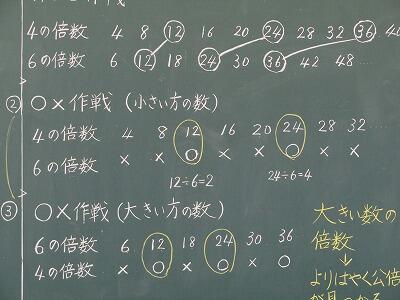 4の倍数 4 8 12 16 20 24 28 32 36 40
6の倍数 6 12 18 24 30 36 42 48 ……
② ○×作戦 (小さい方の数)
4の倍数 4 8 12 16 20 24 28 32 ……
6の倍数 × × ○ × × ○ × ×
12÷6=2 24÷6=4
③ ○×作戦 (大きい方の数)
6の倍数 6 12 18 24 30 36
4の倍数 × ○ × ○ × ○
大きい数の
倍数
↓
よりはやく公倍